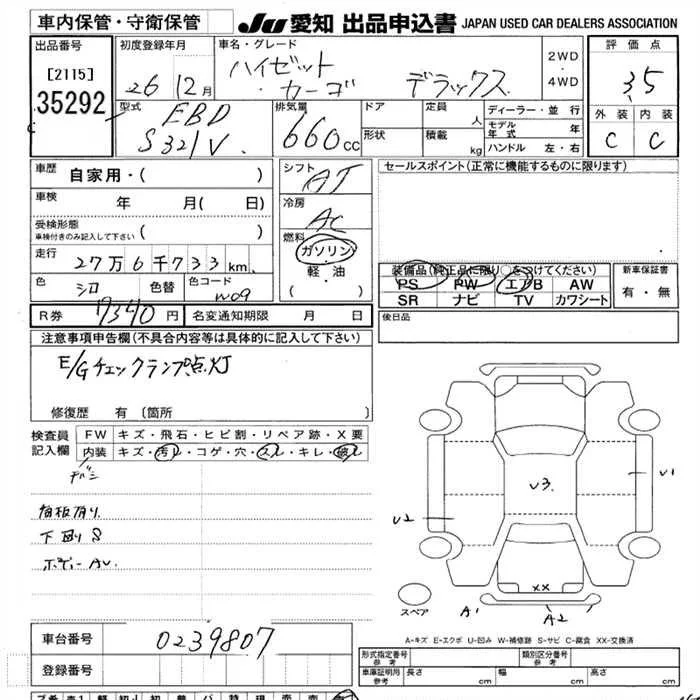 車内保管・守衛保管
JU 愛知 出品申込書 JAPAN USED CAR DEALERS ASSOCIATION
出品番号
[2115]
35292
初度登録年月
26 12月
車名・グレード
ハイゼット
・カーゴ デラックス
2WD
・
4WD
評価点
3.5
外装 内装
C C
型式
EBD
S321V
排気量
660cc
ドア
形状
定員 人
積載 kg
ディーラー・並行
モデル年式 年
ハンドル 左・右
車歴 自家用・( )
車検 年 月( 日)
受検形態
車検付きのみ記入して下さい ( )
走行 27万6千733km
色 シロ 色替 色コード W09
R券 9340円 名変通知期限 月 日
シフト
AT
冷房
AC
燃料
ガソリン
・
軽・油
( )
セールスポイント(正常に機能するものに限ります)
装備品(純正品に限り○をつけてください)
PS PW エアB AW
SR ナビ TV カワシート
新車保証書
有・無
後日品
注意事項申告欄(不具合内容等は具体的に記入して下さい)
E/Gチェックランプ点灯
修復歴 有 〔箇所 〕
検査員
記入欄
FW キズ・飛石・ヒビ割・リペア跡・X要
内装 キズ・汚レ・コゲ・穴・スレ・キレ・破レ
下回りS
ボデーAU
U3
U1
U2
XX
A1
A2
スペア
A-キズ E-エクボ U-凹み W-補修跡 S-サビ C-腐食 XX-交換済
車台番号 0239807
登録番号
形式指定番号
参考
類別区分番号
参考
車庫証明用
参考
長さ cm 幅 cm 高さ cm